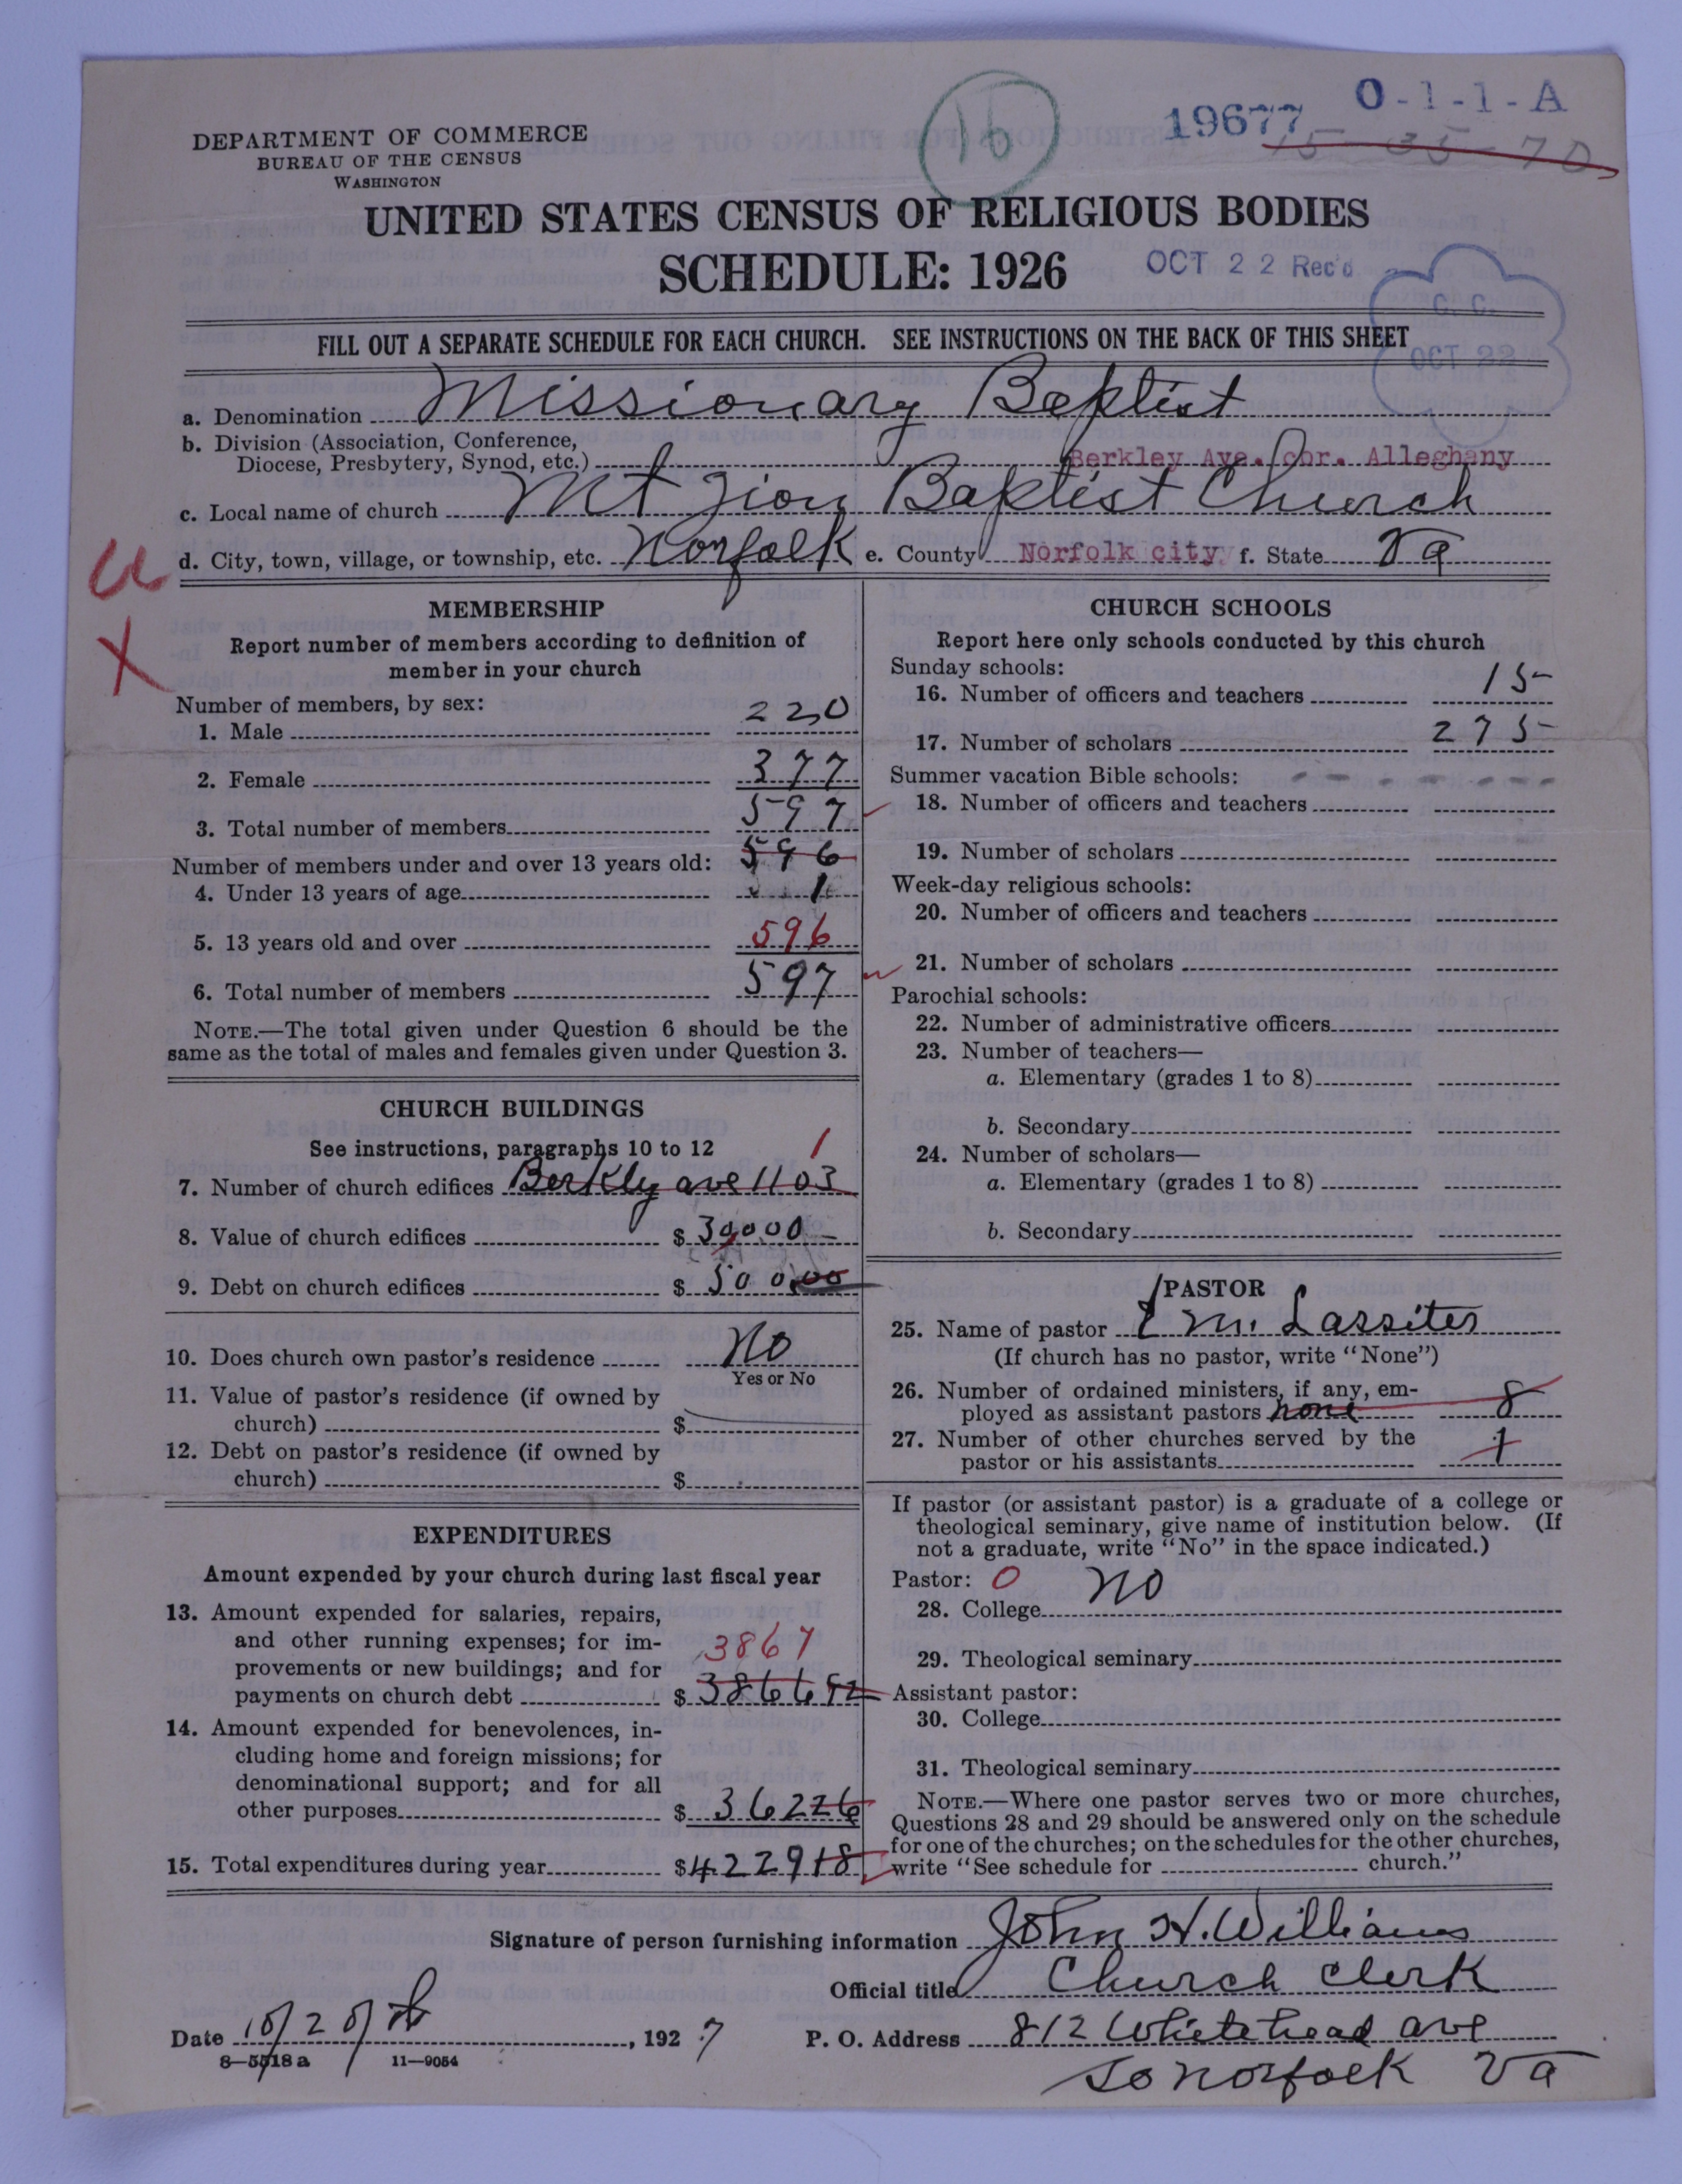 16
19677
O-1-1-A
15-35-70
DEPARTMENT OF COMMERCE
BUREAU OF THE CENSUS
WASHINGTON
UNITED STATES CENSUS OF RELIGIOUS BODIES
SCHEDULE: 1926
OCT 22 Rec'd
C. C.
OCT 22
FILL OUT A SEPARATE SCHEDULE FOR EACH CHURCH. SEE INSTRUCTIONS ON THE BACK OF THIS SHEET
a. Denomination Missionary Baptist
b. Division (Association, Conference,
Diocese, Presbytery, Synod, etc.) Berkley Ave. cor. Alleghany
c. Local name of church Mt Zion Baptist Church
d. City, town, village, or township, etc. Norfolk e. County Norfolk city f. State Va
X
MEMBERSHIP
Report number of members according to definition of
member in your church
Number of members, by sex:
1. Male 220
2. Female 377
3. Total number of members 597
Number of members under and over 13 years old: 596
4. Under 13 years of age 1
5. 13 years old and over 596
6. Total number of members 597
NOTE.—The total given under Question 6 should be the
same as the total of males and females given under Question 3.
CHURCH BUILDINGS
See instructions, paragraphs 10 to 12 1
7. Number of church edifices Berkly ave 1103
8. Value of church edifices $ 30,000
9. Debt on church edifices $ 500.00
10. Does church own pastor's residence No
Yes or No
11. Value of pastor's residence (if owned by
church) $
12. Debt on pastor's residence (if owned by
church) $
EXPENDITURES
Amount expended by your church during last fiscal year
13. Amount expended for salaries, repairs,
and other running expenses; for im-
provements or new buildings; and for 3867
payments on church debt $ 386692
14. Amount expended for benevolences, in-
cluding home and foreign missions; for
denominational support; and for all
other purposes $ 36226
15. Total expenditures during year $422918
CHURCH SCHOOLS
Report here only schools conducted by this church
Sunday schools:
16. Number of officers and teachers 15
17. Number of scholars 275
Summer vacation Bible schools:
18. Number of officers and teachers
19. Number of scholars
Week-day religious schools:
20. Number of officers and teachers
21. Number of scholars
Parochial schools:
22. Number of administrative officers
23. Number of teachers—
a. Elementary (grades 1 to 8)
b. Secondary
24. Number of scholars—
a. Elementary (grades 1 to 8)
b. Secondary
PASTOR
25. Name of pastor M. Lassiter
(If church has no pastor, write "None")
26. Number of ordained ministers, if any, em-
ployed as assistant pastors none 8
27. Number of other churches served by the
pastor or his assistants 1
If pastor (or assistant pastor) is a graduate of a college or
theological seminary, give name of institution below. (If
not a graduate, write "No" in the space indicated.)
Pastor: 0
28. College NO
29. Theological seminary
Assistant pastor:
30. College
31. Theological seminary
NOTE.—Where one pastor serves two or more churches,
Questions 28 and 29 should be answered only on the schedule
for one of the churches; on the schedules for the other churches,
write "See schedule for church."
Signature of person furnishing information John H. Williams
Official title Church Clerk
Date 10/20/, 1927
P. O. Address 812 Whitehead ave
So Norfolk Va
8—5518a 11—9054